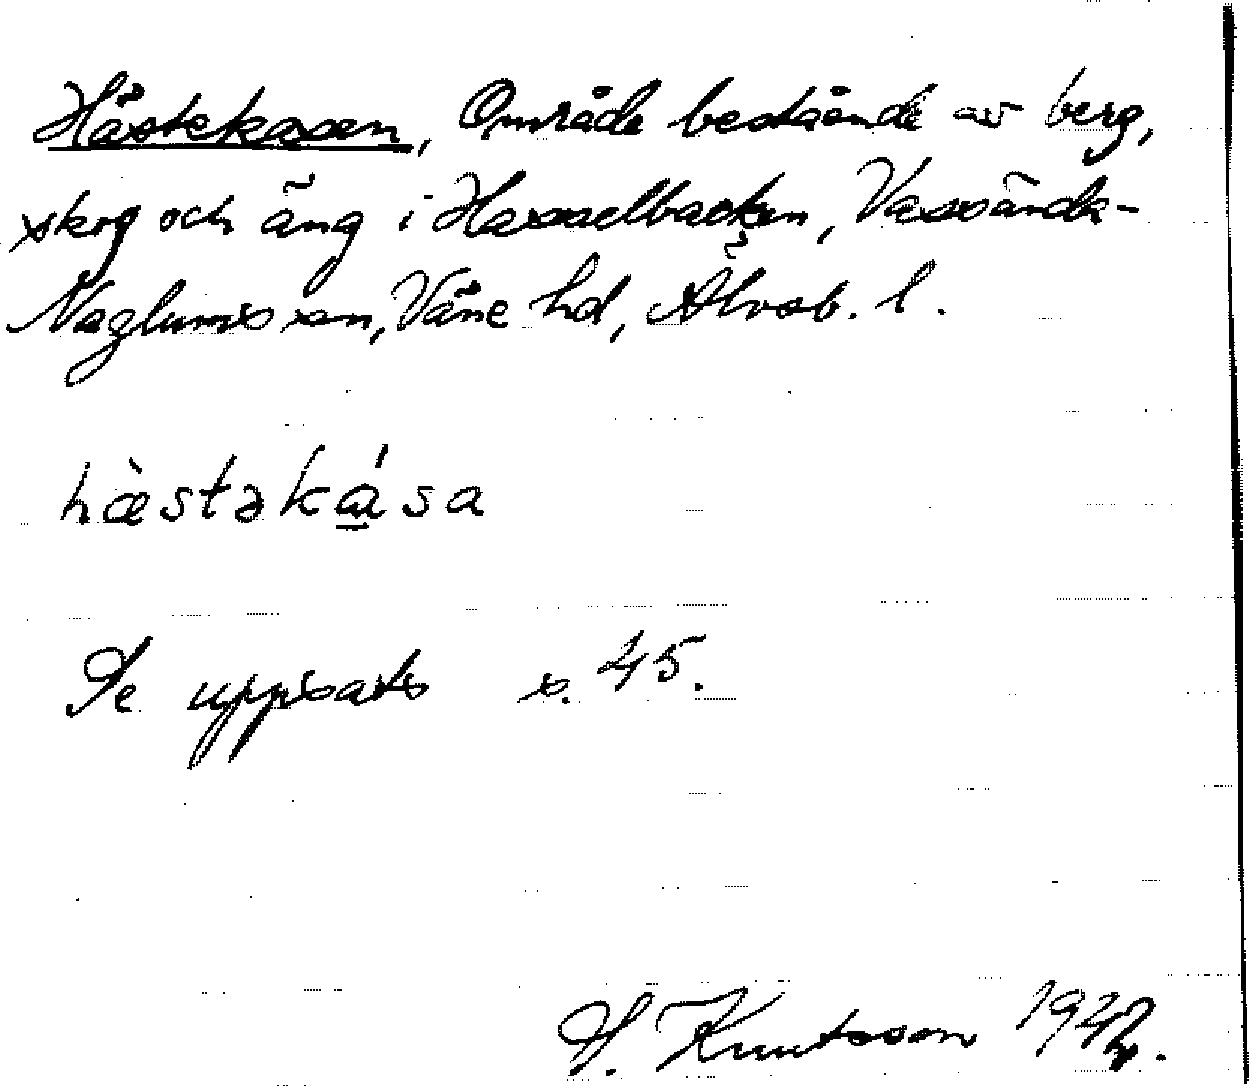 Hästekasen, Område bestående av berg,
skog och äng i Hasselbacken, Vassända-
Naglums sn, Väne hd, Älvsb. l.
hæ̀stəká̲sa
Se uppsats s. 45.
Knutsson